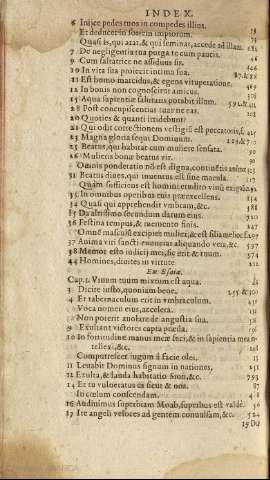 INDEX.
6 Inijce pedes tuos in compedes illius.
Et deducet io suorum impiorum.
Quasi is, qui arat. & qui seminat, accede ad illam. 682
7 De negligentia tua purga te cum paucis.
9 Cum saltatrice ne assiduus sis.
10 In vita sua proiecit intima sua. 87. & 88
11 Est homo marcidus, & egens vituperatione. 469
12 In bonis non cognoscitur amicus.
15 Aqua sapientiæ salutaris potabit illum.
18 Post concupiscentias tuas ne eas. 202
20 Quoties & quanti irridebunt?
21 Qui odit correctionem vestigiũ est peccatoris,
23 Magna gloria sequi Dominum.
25 Beatus, qui habitat cum muliere sensata. 90
26 Mulieris bonæ beatus vir. 90
Omnis ponderatio nõ est digna, continẽtis animæ
31 Beatus diues, qui inuentus est sine macula. 117
Quàm sufficiens est homini erudito vinũ exiguũ.
33 In omnibus operibus tuis præexcellens. 154
34 Quasi qui apprehendit vmbram, &c. 188
35 Da altissimo secundum datum eius. 720
36 Festina tempus, & memento finis. 247
Omnẽ masculũ excipiet mulier, & est filia melior filia. 97
37 Anima viri sancti enuntiat aliquando vera, &c. 597
38 Memor esto iudicij mei, sic erit & tuum. 374
44 Homines, diuites in virtute 222
Ex Esaia.
Cap. 1. Vinum tuum mixtum est aqua.
3 Dicite iusto, quoniam bene. 255 & 500
4 Et tabernaculum erit in vmbraculum. 431
Voca nomen eius, accelera. 152
Non poterit auolare de angustia sua. 58
9 Exultant victores capta præda. 196
10 In fortitudine manus meæ feci, & in sapientia mea
tellexi, &c. 208
Computrescet iugum à facie olei. 13
11 Leuabit Dominus signum in nationes. 251
12 Exulta, & lauda habitatio Sion, &c. 793
14 Et tu vulneratus es sicut & nos. 87
In cœlum conscendam. 8
16 Audiuimus superbiam Moab, superbus est valdè. 56
18 Ite angeli veloces ad gentem conuulsam, &c. 524
19 Da